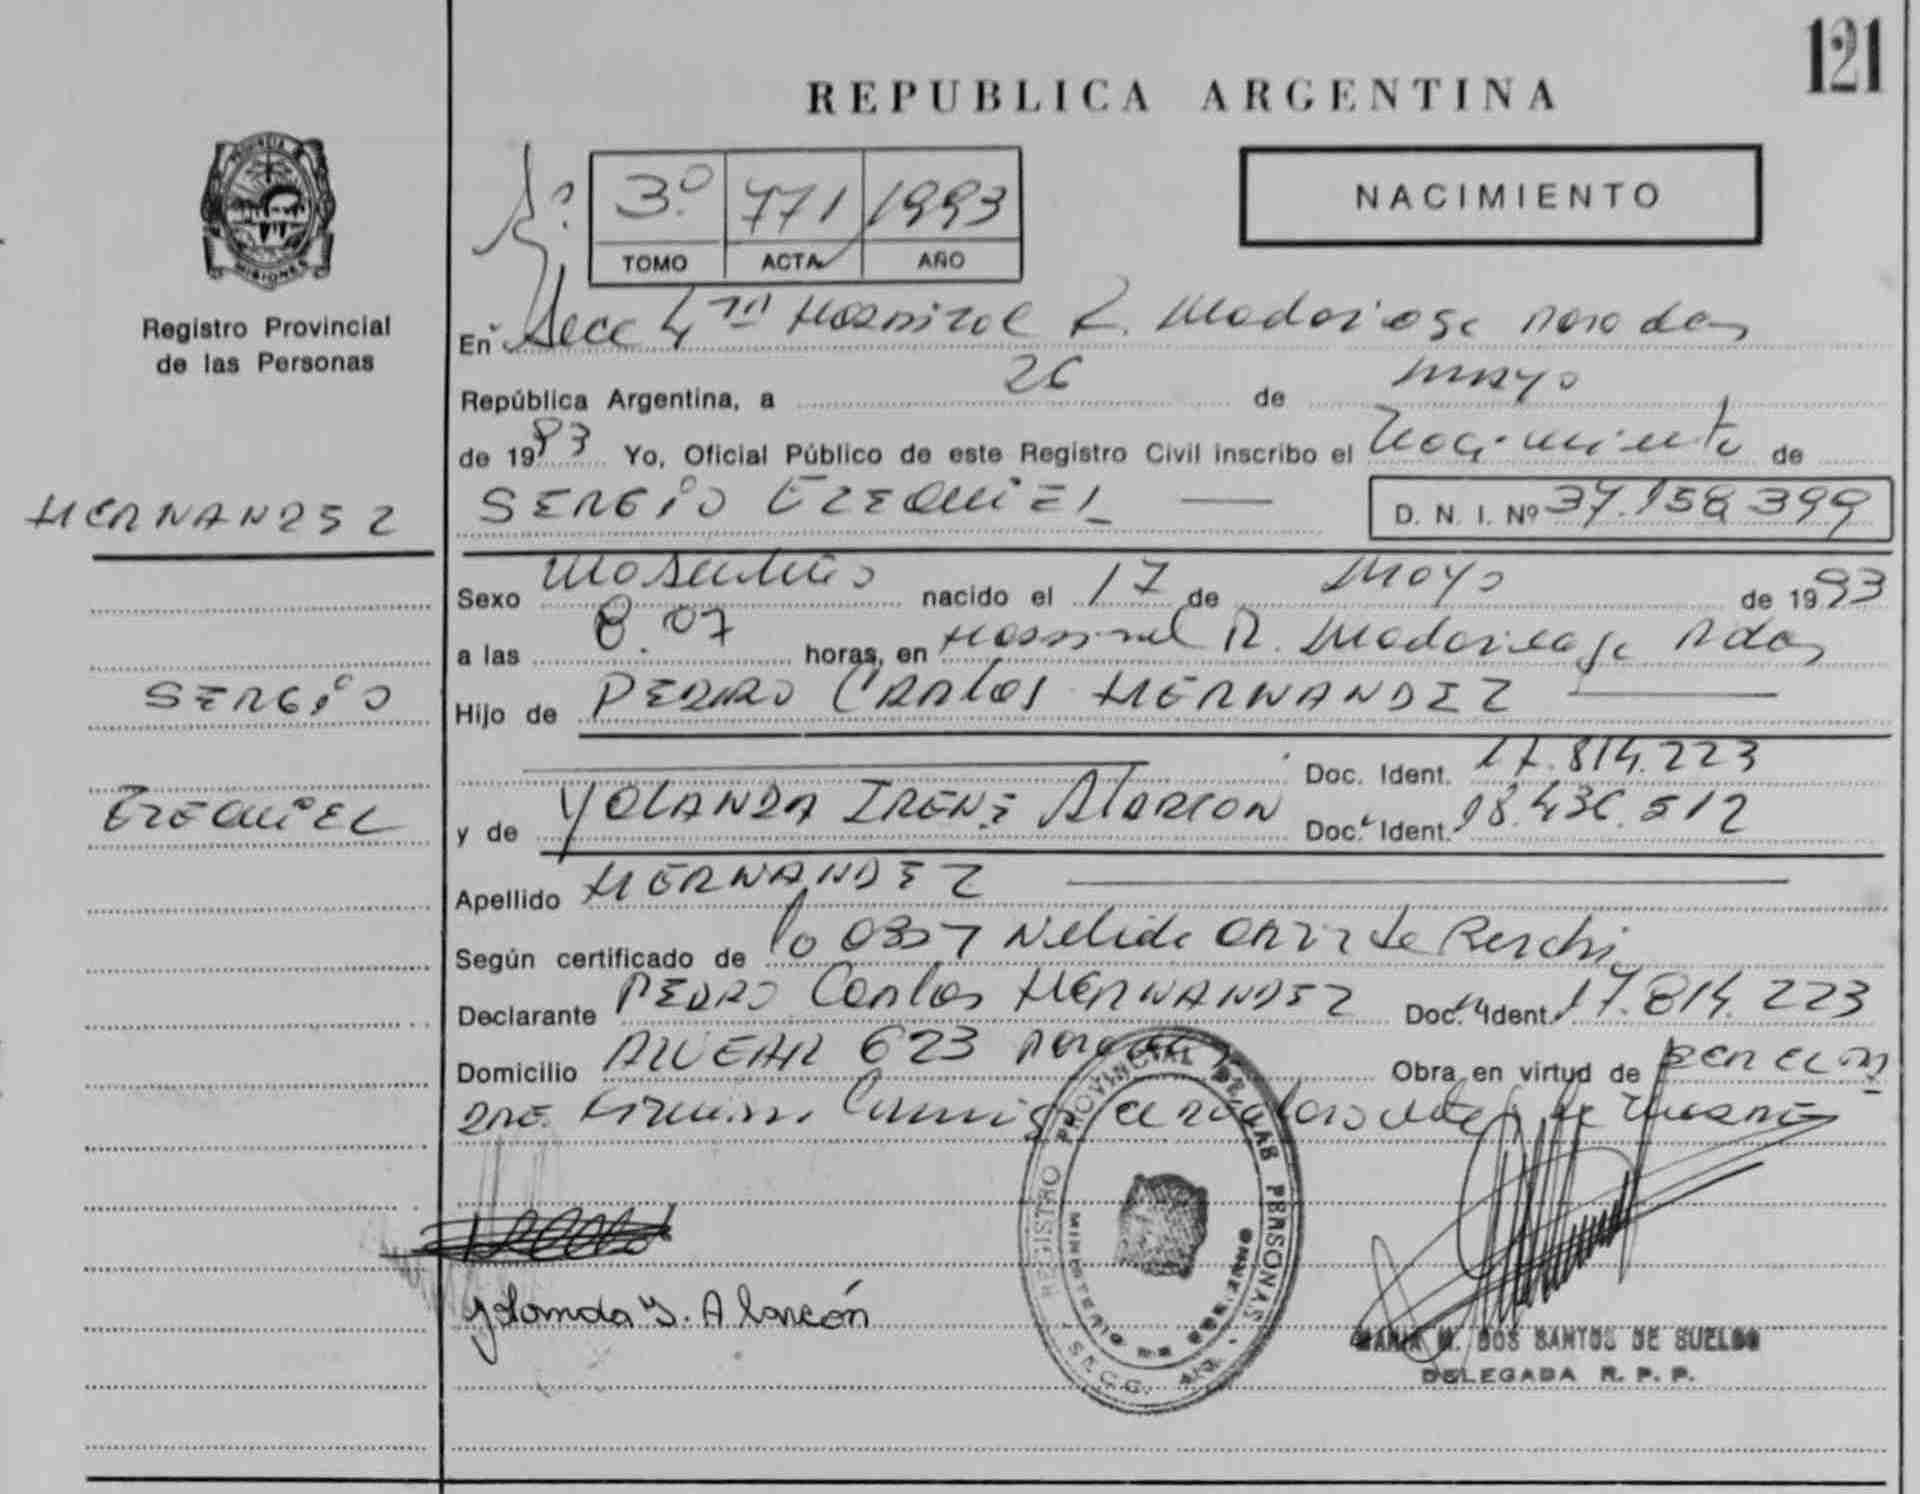 121
REPUBLICA ARGENTINA
PROVINCIA DE MISIONES
Registro Provincial
de las Personas
3º 771 1993
TOMO ACTA AÑO
NACIMIENTO
En Secc 4ta Hospital R. Madariaga Posadas
República Argentina, a 26 de mayo
de 1993 Yo, Oficial Público de este Registro Civil inscribo el Nacimiento de
HERNANDEZ
SERGIO EZEQUIEL D. N. I. Nº 37.158.399
Sexo Masculino nacido el 17 de Mayo de 1993
a las 8.07 horas, en Hospital R. Madariaga Pdas
SERGIO
Hijo de PEDRO CARLOS HERNANDEZ
Doc. Ident. 17.814.223
EZEQUIEL
y de YOLANDA IRENE ALARCON Doc. Ident. 18.436.512
Apellido HERNANDEZ
Según certificado de Nelida
Declarante PEDRO Carlos HERNANDEZ Doc. Ident. 17.814.223
Domicilio ALVEAR 623 Obra en virtud de
Yolanda Y. Alarcón
REGISTRO PROVINCIAL DE LAS PERSONAS
MINISTERIO DE
MARIA M. DOS SANTOS DE SUELDO
DELEGADA R. P. P.